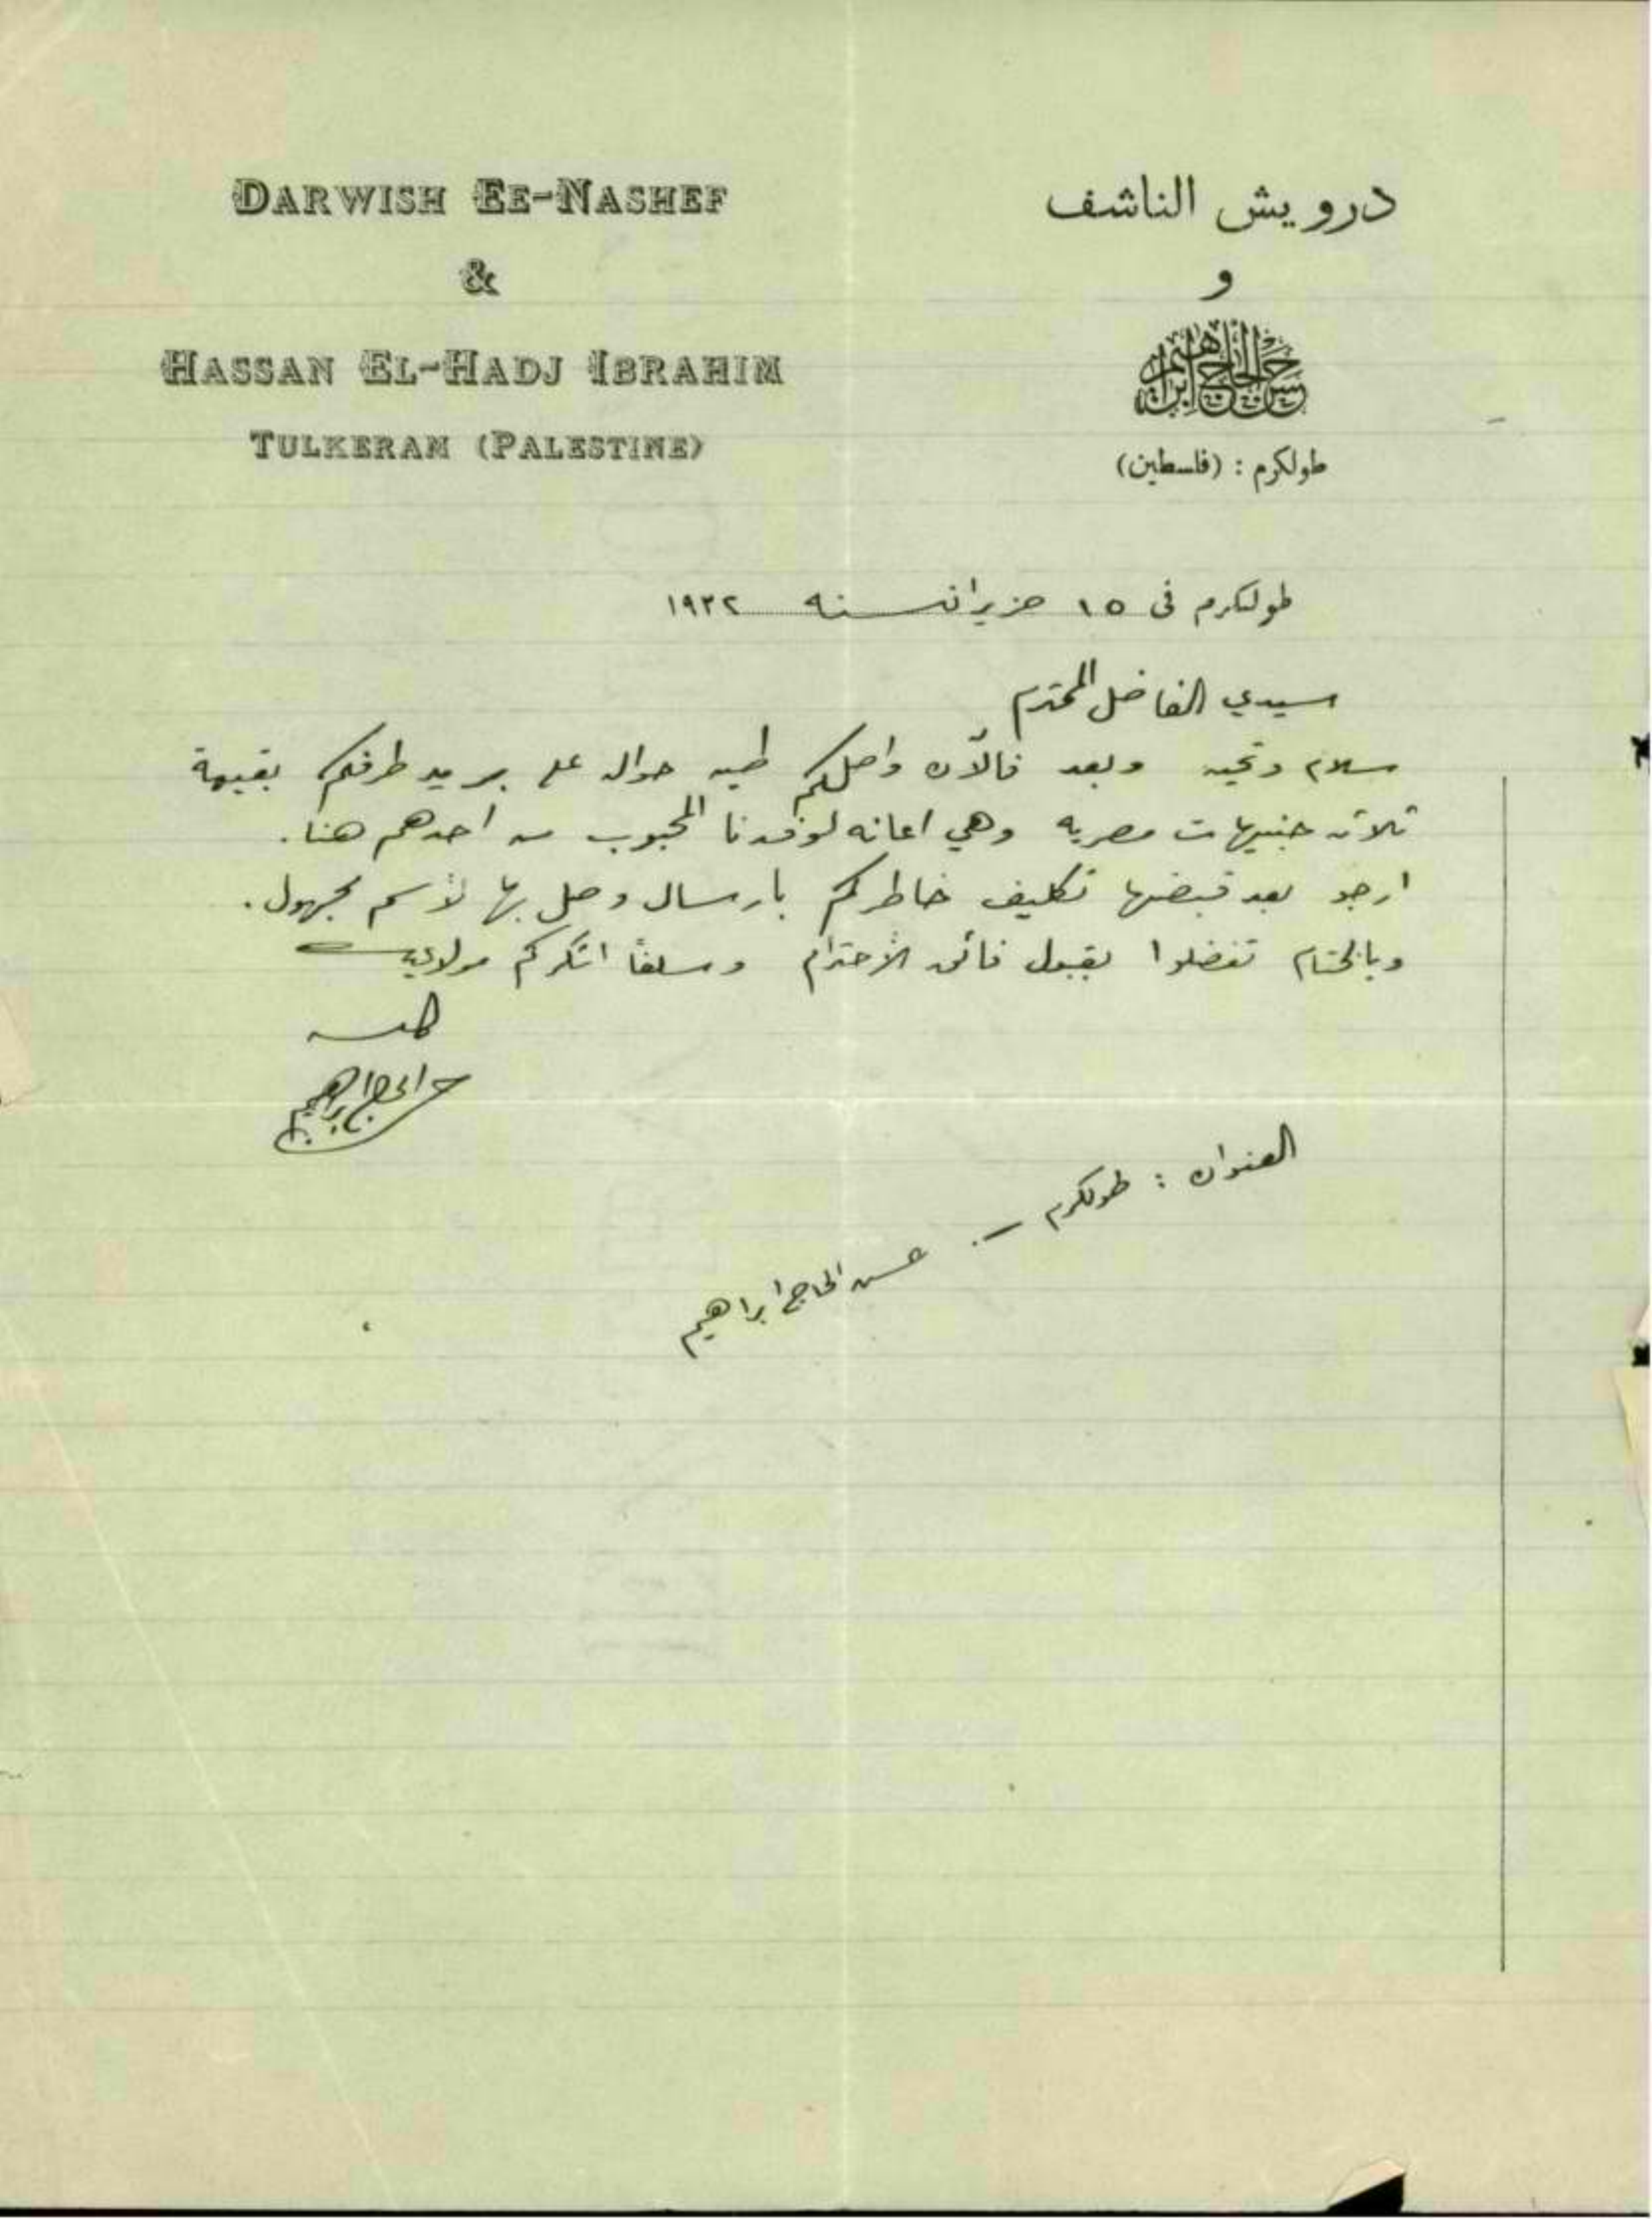 DARWISH EE-NASHEF
&
HASSAN EL-HADJ IBRAHIM
TULKERAM (PALESTINE)
درويش الناشف
و
حسن الحاج ابراهيم
طولكرم : (فلسطين)
طولكرم فى ١٥ حزيران سنه ١٩٢٢
سيدي الفاضل المحترم
سلام وتحيه وبعد فالآن واصلكم طيه حواله على بريد طرفكم بقيمة
ثلاثه جنيهات مصريه وهي اعانه لوفدنا المحبوب من احدهم هنا.
ارجو بعد قبضها تكليف خاطركم بارسال وصل بها لأسم مجهول.
وبالختام تفضلوا بقبول فائق الأحترام وسلفاً اشكركم مولاي
حسن الحاج ابراهيم
العنوان : طولكرم -. حسن الحاج ابراهيم